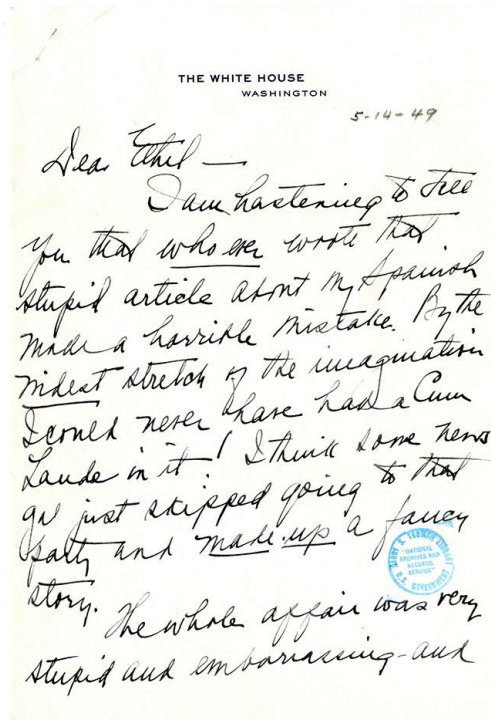 THE WHITE HOUSE
WASHINGTON
5-14-49
Dear Ethel —
I am hastening to tell
you that who ever wrote that
stupid article about my Spanish
made a horrible mistake. By the
widest stretch of the imagination
I could never have had a Cum
Laude in it! I think some news
gal just skipped going to that
party and made up a fancy
story.
The whole affair was very
stupid and embarrassing - and
HARRY S. TRUMAN LIBRARY
"NATIONAL
ARCHIVES AND
RECORDS
SERVICE"
U.S. GOVERNMENT